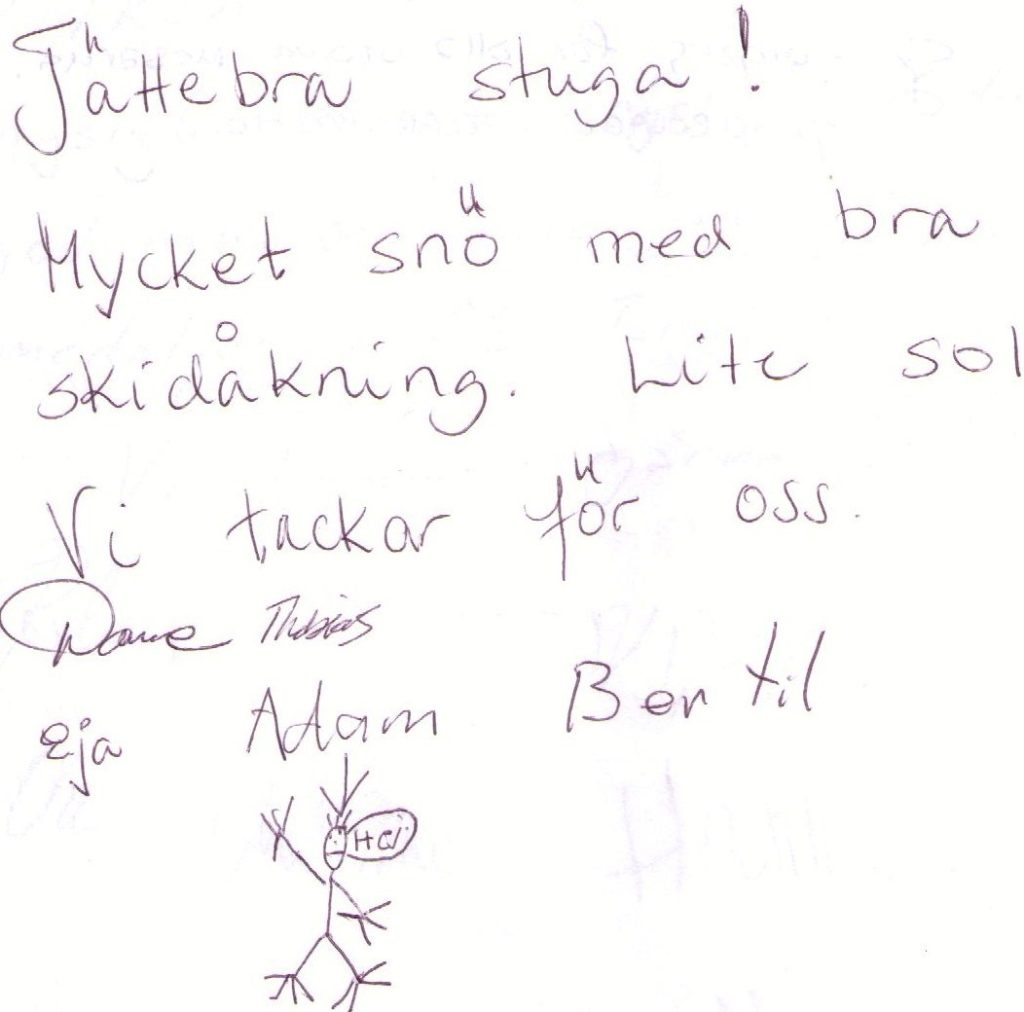 Jättebra stuga!
Mycket snö med bra
skidåkning. Lite sol
Vi tackar för oss.
Thobias
eja Adam Bertil
Hej